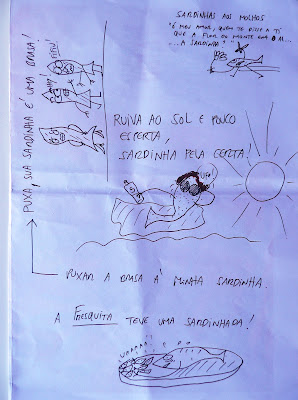 SARDINHAS AOS MOLHOS
"É MEU AMOR, QUEM TE DISSE A TI
QUE A FLOR DO MONTE ERA O AL...
...A SARDINHA"
PUXA, SUA SARDINHA É UMA BRASA!
RUIVA AO SOL E POUCO
ESPERTA,
SARDINHA PELA CERTA!
PUXAR A BRASA À MINHA SARDINHA.
A FRESQUITA TEVE UMA SARDINHADA!